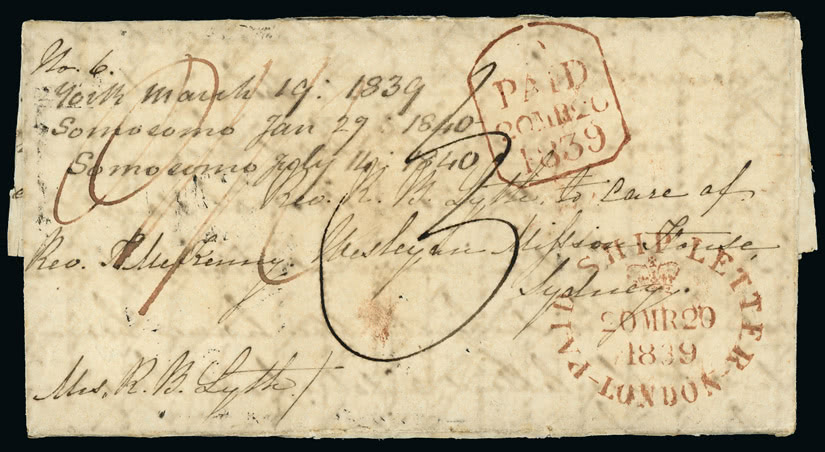 No. 6.
York March 19: 1839
Somosomo Jan 29: 1840
Somosomo July 14: 1840
Rev. R. B. Lyth, to care of
Rev. McKenny. Wesleyan Mission House,
Sydney.
Mrs. R. B. Lyth
3
PAID
20MR20
1839
PAID SHIP LETTER
20MR20
1839
LONDON